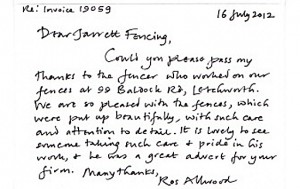 Re: Invoice 19059
16 July 2012
Dear Jarrett Fencing,
Could you please pass my
thanks to the fencer who worked on our
fences at 99 Baldock Rd, Letchworth.
We are so pleased with the fences, which
were put up beautifully, with such care
and attention to detail. It is lovely to see
someone taking such care & pride in his
work, & he was a great advert for your
firm. Many thanks,
Ros Allwood